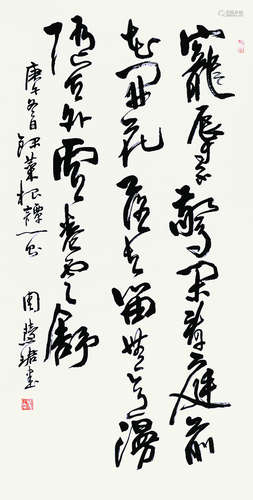 寵辱不驚闲看庭前
花开花落去留無意漫
随天外雲卷雲舒
庚午冬日録菜根譚
周慧珺書